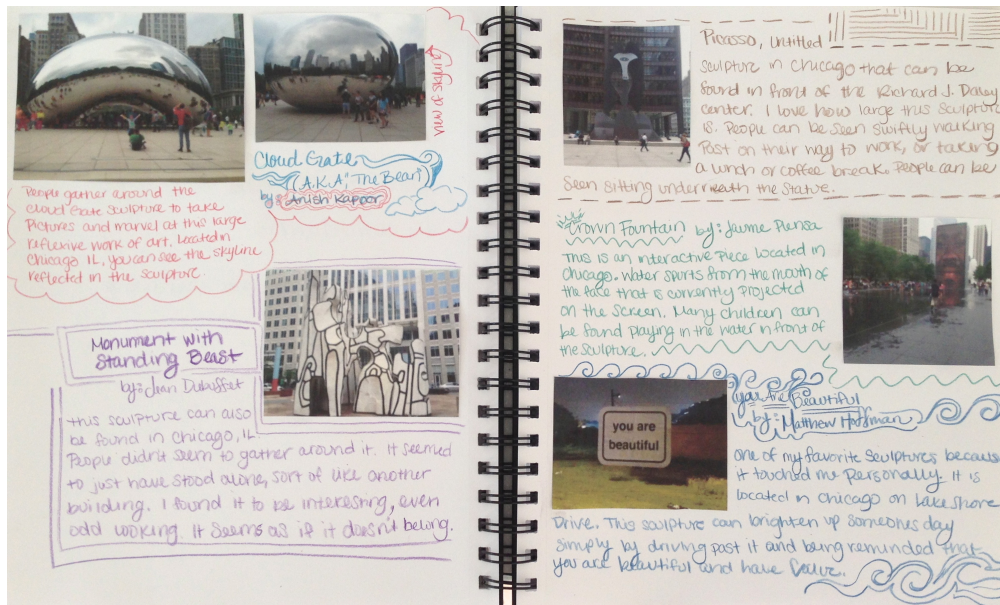 People gather around the
Cloud Gate sculpture to take
Pictures and marvel at this large
reflexive work of art. Located in
Chicago IL, you can see the skyline
reflected in the sculpture.
Cloud Gate
(A.K.A; "The Bean")
by: Anish Kapoor
view of skyline
Monument with
Standing Beast
by: Jean Dubuffet
This sculpture can also
be found in Chicago, IL.
People didn't seem to gather around it. It seemed
to just have stood alone, sort of like another
building. I found it to be interesting, even
odd looking. It seems as if it doesn't belong.
Picasso, Untitled
Sculpture in Chicago that can be
found in front of the Richard J. Daley
center. I love how large this Sculpture
is. People can be seen swiftly walking
Past on their way to work, or taking
a lunch or coffee break. People can be
Seen sitting underneath the Statue.
Crown Fountain by: Jaume Plensa
This is an interactive piece located in
Chicago. Water spurts from the mouth of
the face that is currently projected
on the screen. Many children can
be found playing in the water in front of
the sculpture.
you are
beautiful
You Are Beautiful
by: Matthew Hoffman
One of my favorite Sculptures because
it touched me personally. It is
located in Chicago on Lake Shore
Drive. This sculpture can brighten up someones day
simply by driving past it and being reminded that
you are beautiful and have Value.